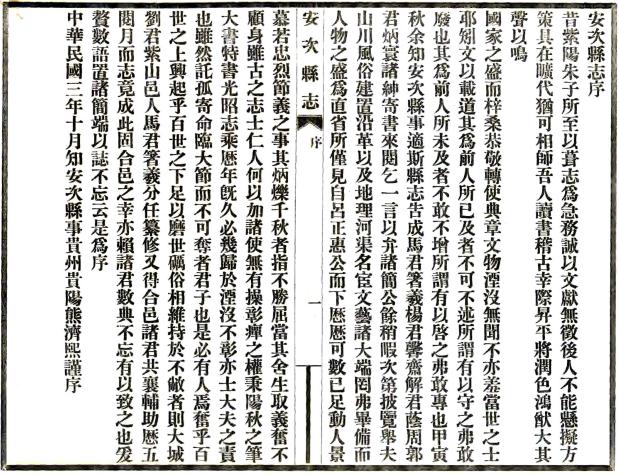 安次縣志序
昔紫陽朱子所至以葺志為急務誠以文獻無徵後人不能懸擬方
策具在曠代猶可相師吾人讀書稽古幸際昇平將潤色鴻猷大其
聲以鳴
國家之盛而梓桑恭敬轉使典章文物湮沒無聞不亦羞當世之士
耶矧文以載道其為前人所已及者不可不述所謂有以守之弗敢
廢也其為前人所未及者不敢不增所謂有以啓之弗敢專也甲寅
秋余知安次縣事適斯縣志告成馬君箸羲楊君馨齋解君蔭周郭
君炳寰諸紳寄書來閱乞一言以弁諸簡公餘稍暇次第披覽舉夫
山川風俗建置沿革以及地理河渠名宦文藝諸大端罔弗畢備而
人物之盛為直省所僅見自呂正惠公而下歷歷可數已足動人景
安次縣志
序
一
慕若忠烈節義之事其炳爍千秋者指不勝屈當其舍生取義奮不
顧身雖古之志士仁人何以加諸使無有操彰癉之權秉陽秋之筆
大書特書光昭志乘歷年旣久必幾歸於湮沒不彰亦士大夫之責
也雖然託孤寄命臨大節而不可奪者君子也是必有人焉奮乎百
世之上興起乎百世之下足以磨世礪俗相維持於不敝者則大城
劉君紫山邑人馬君箸羲分任纂修又得合邑諸君共襄輔助歷五
閱月而志竟成此固合邑之幸亦賴諸君數典不忘有以致之也爰
贅數語置諸簡端以誌不忘云是為序
中華民國三年十月知安次縣事貴州貴陽熊濟熙謹序